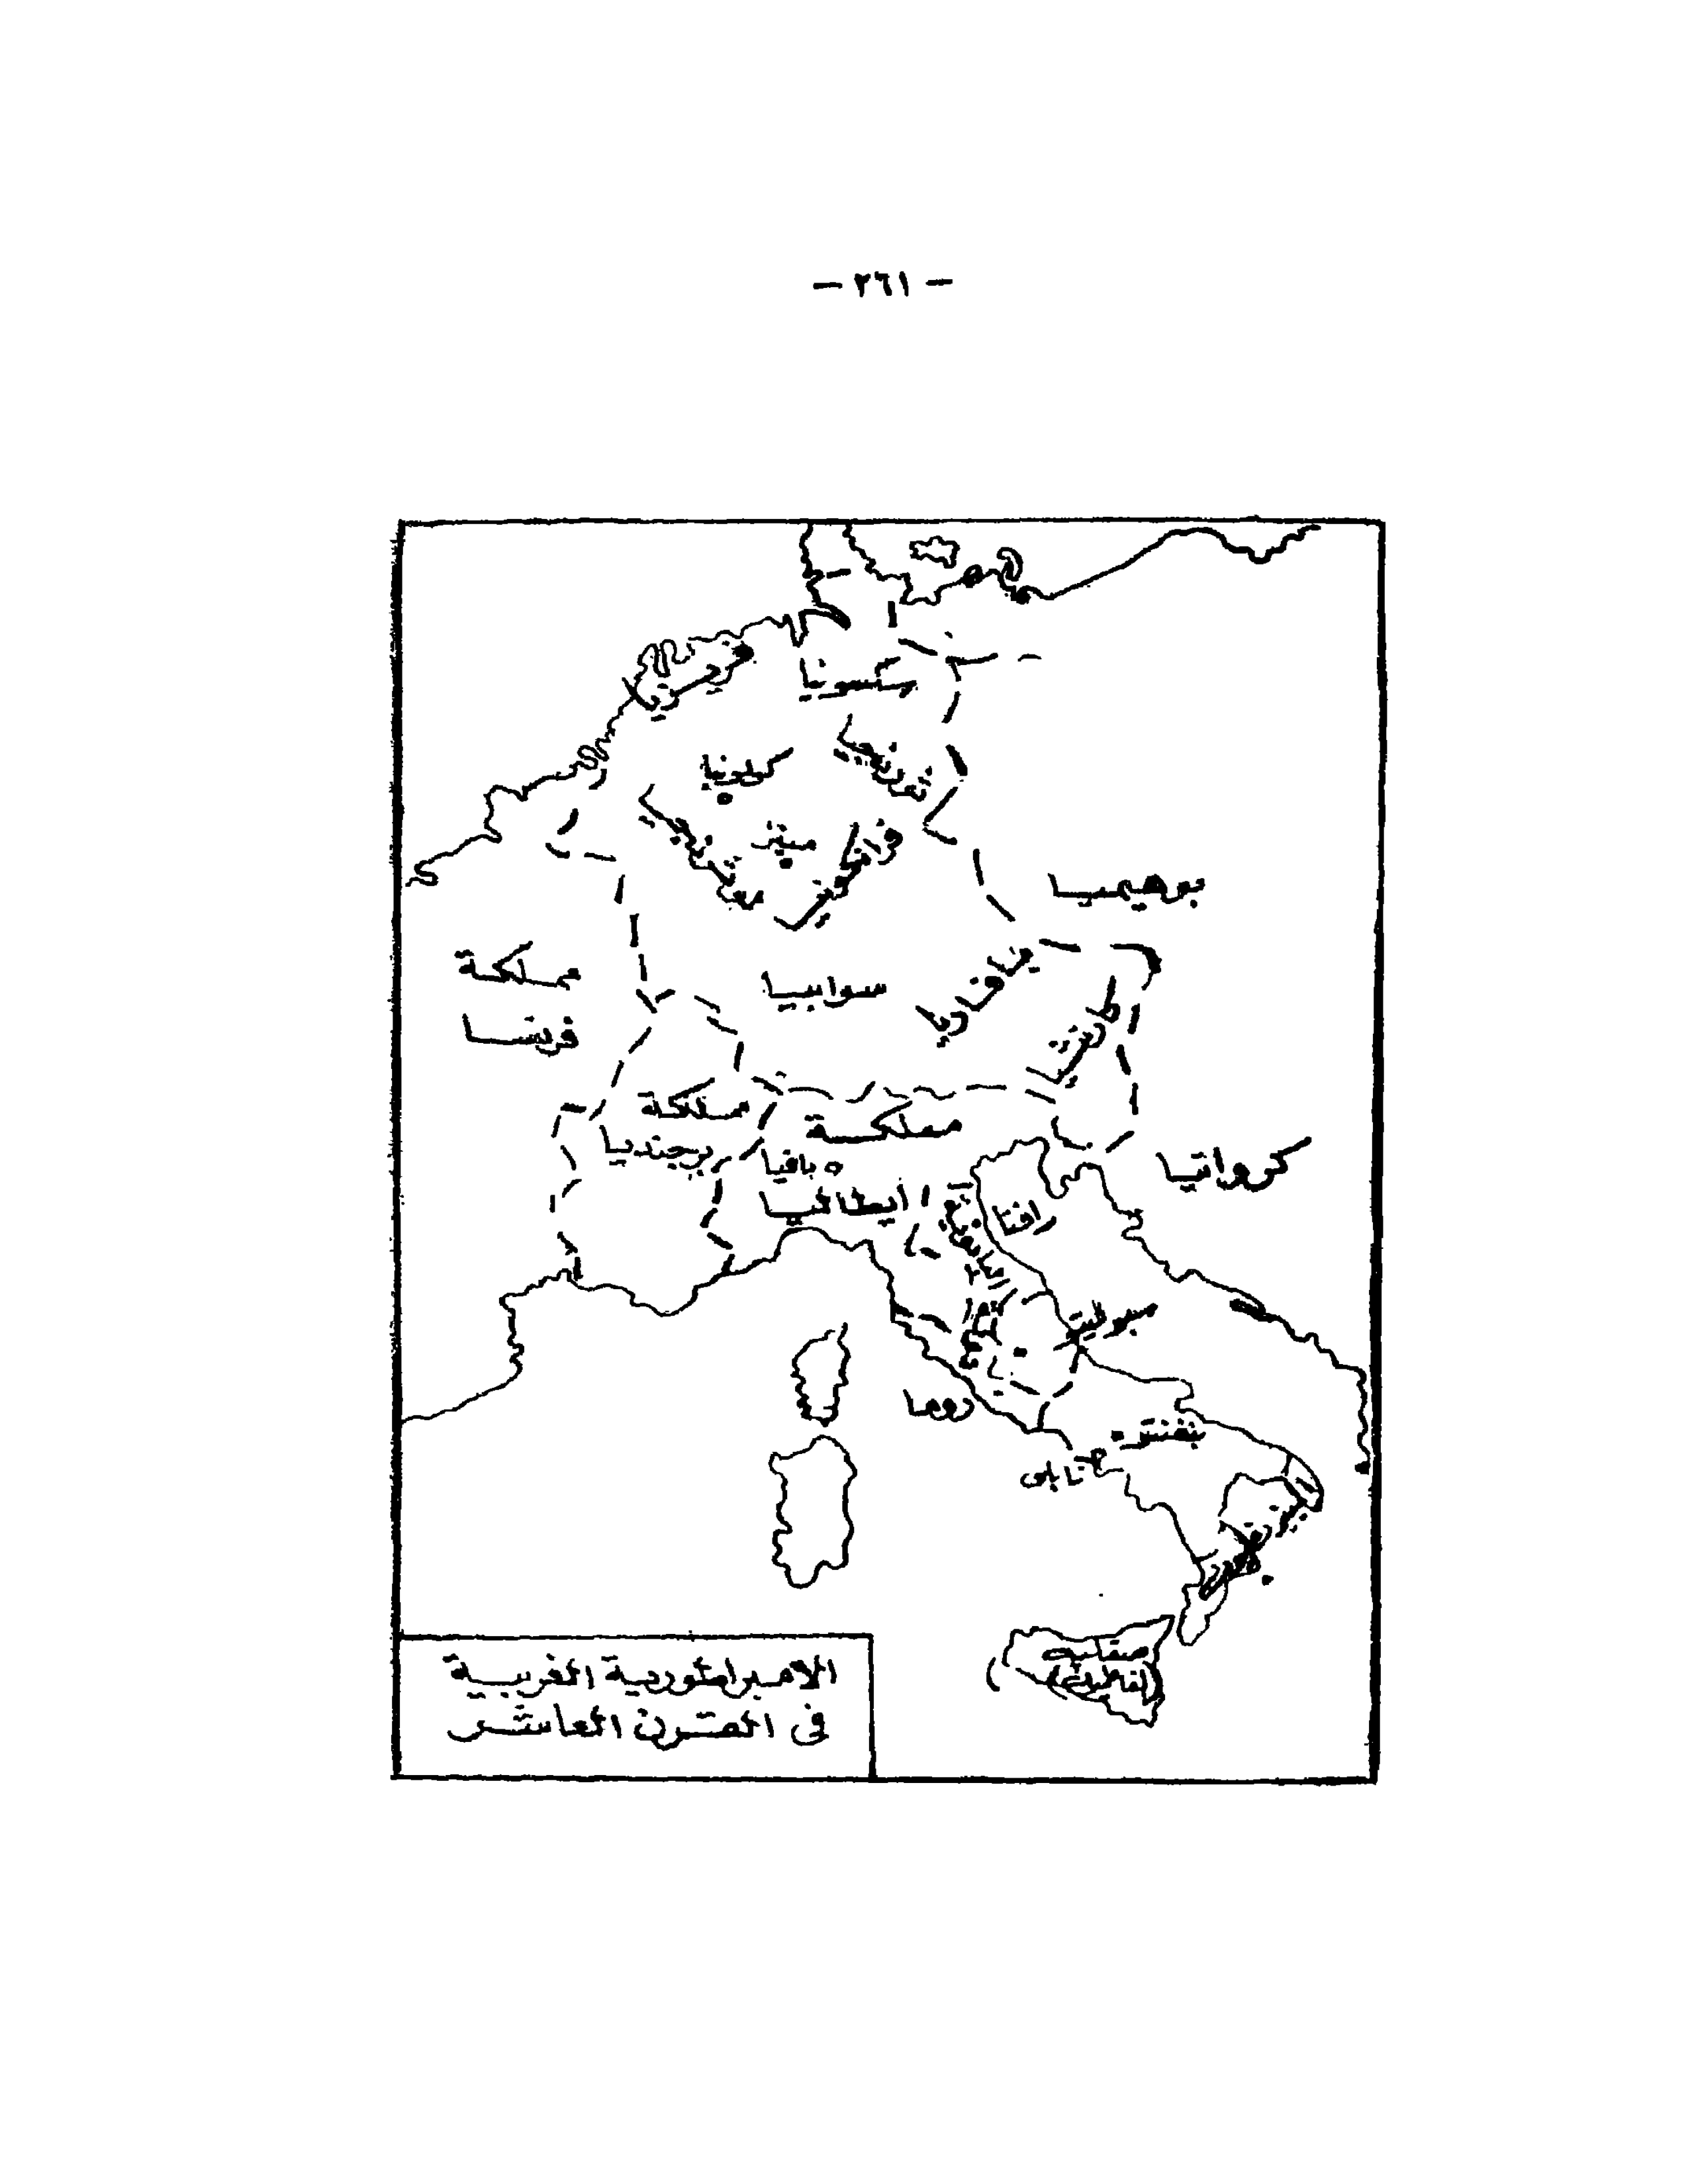 - ٢٦١ -
سكسونيا
كولونيا
ثورنجيا
مينز
فرانكونيا
بوهيميا
مملكة
فرنسا
سوابيا
بافاريا
مملكة
برجنديا
مملكة
بافيا
ايطاليا
كرواتيا
رافنا
سبوليتو
روما
بنفنتو
نابلى
صقلية
(الفاطميون)
الامبراطورية الغربية
فى القرن العاشر